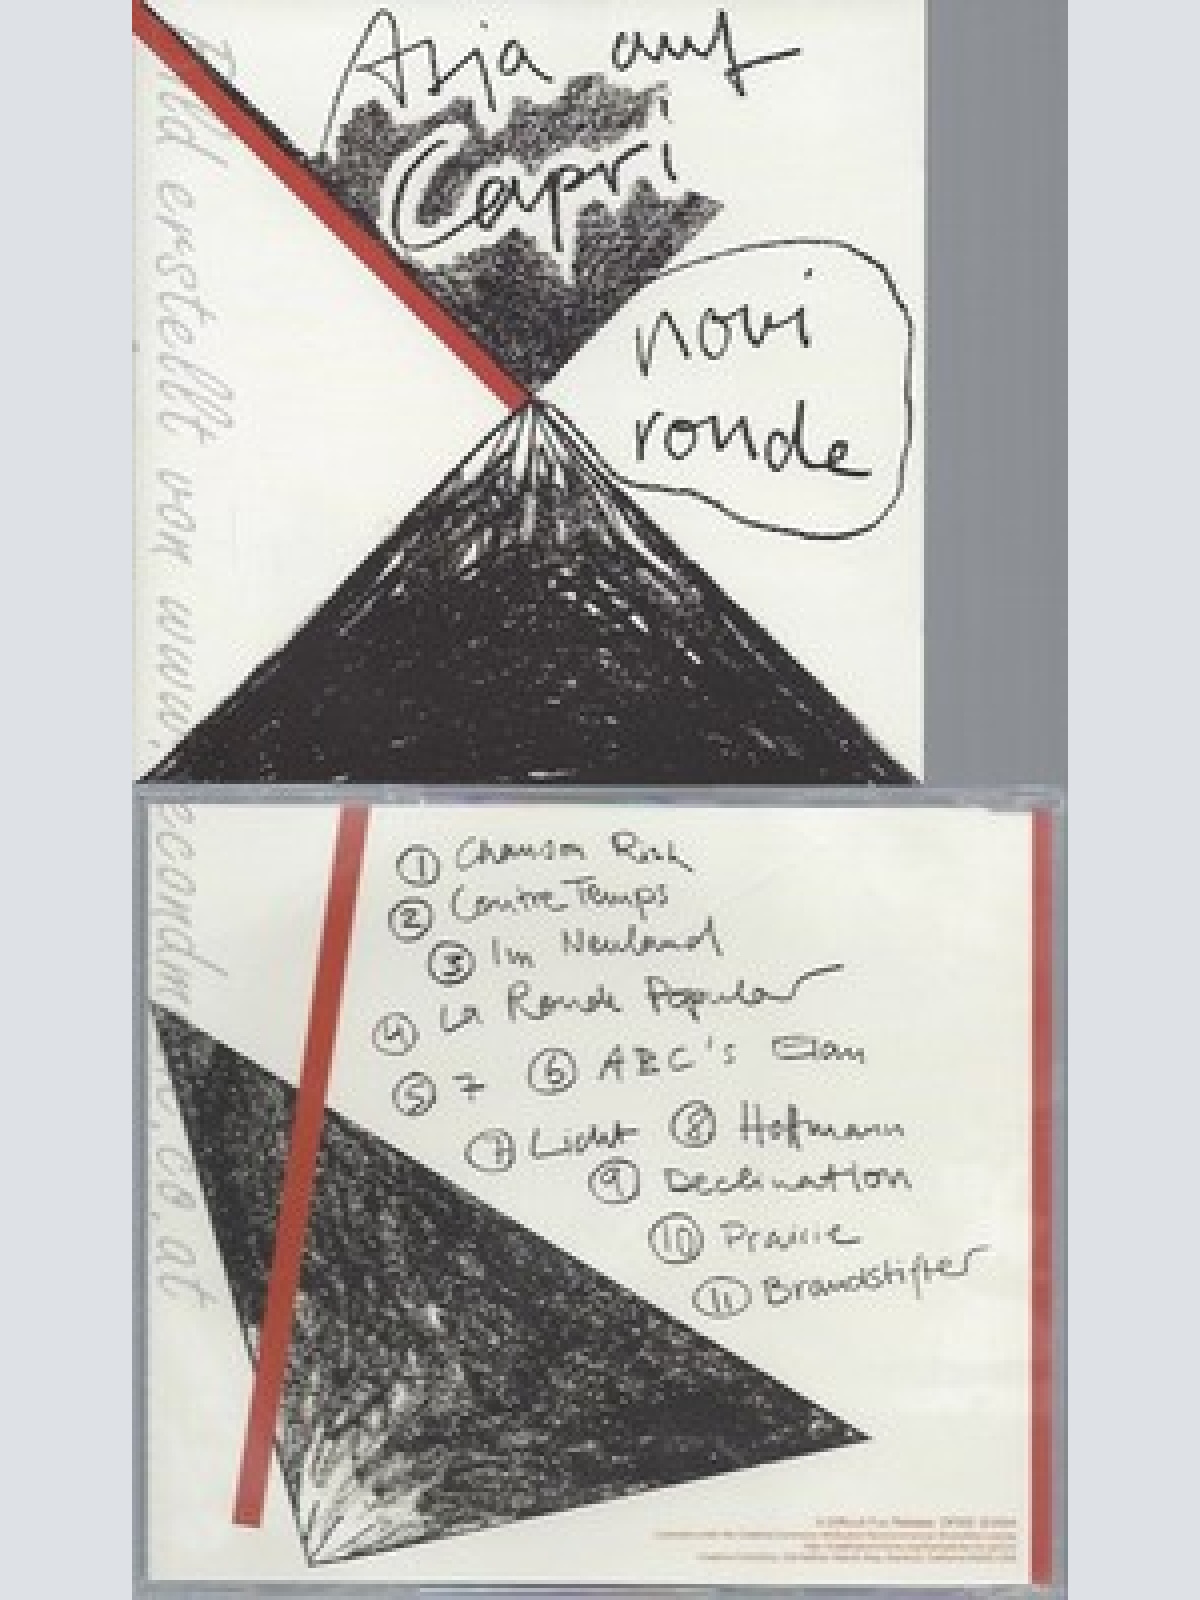 Asja auf
Capri
novi
ronde
Bild erstellt von www.recordmad.co.at
① Chanson Rish
② Contre Temps
③ Im Neuland
④ La Ronde Popular
⑤ 7 ⑥ ABC's Elan
⑦ Licht ⑧ Hoffmann
⑨ Declination
⑩ Prairie
⑪ Brandstifter